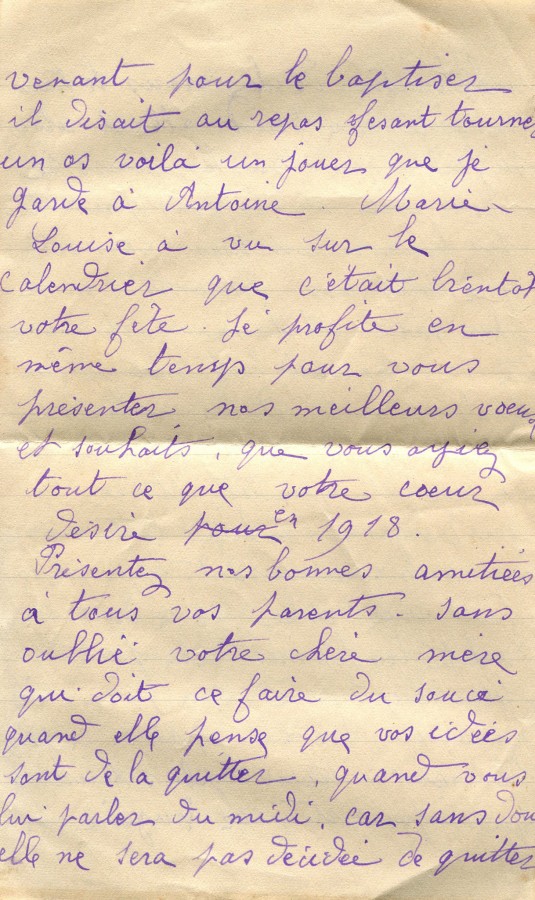 venant pour le baptiser
il disait au repas fesant tourner
un os voilà un jouer que je
garde à Antoine. Marie-
Louise à vu sur le
calendrier que c'était bientot
votre fête. Je profite en
même temps pour vous
présenter nos meilleurs vœux
et souhaits, que vous ayiez
tout ce que votre cœur
désire pour en 1918.
Présentez nos bonnes amitiées
à tous vos parents. sans
oublié votre chère mère
qui doit ce faire du souci
quand elle pense que vos idées
sont de la quitter, quand vous
lui parler du midi, car sans dou
elle ne sera pas décidée de quitter